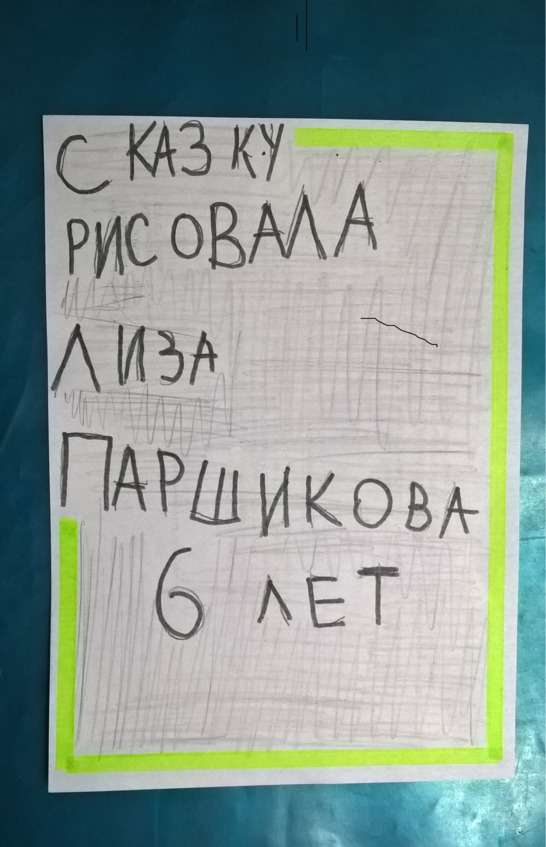 СКАЗКУ
РИСОВАЛА
ЛИЗА
ПАРШИКОВА
6 ЛЕТ